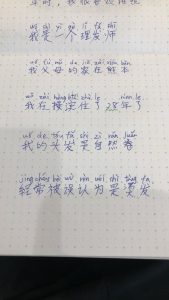 wǒ shì yī gè lǐ fà shī
我是一个理发师
wǒ fù mǔ de jiā zài xióng běn
我父母的家在熊本
wǒ zài héng bīn zhù le nián le
我在横滨住了28年了
wǒ de tóu fà shì zì rán juǎn
我的头发是自然卷
jīng cháng bèi wù rèn wéi shì tàng fà
经常被误认为是烫发